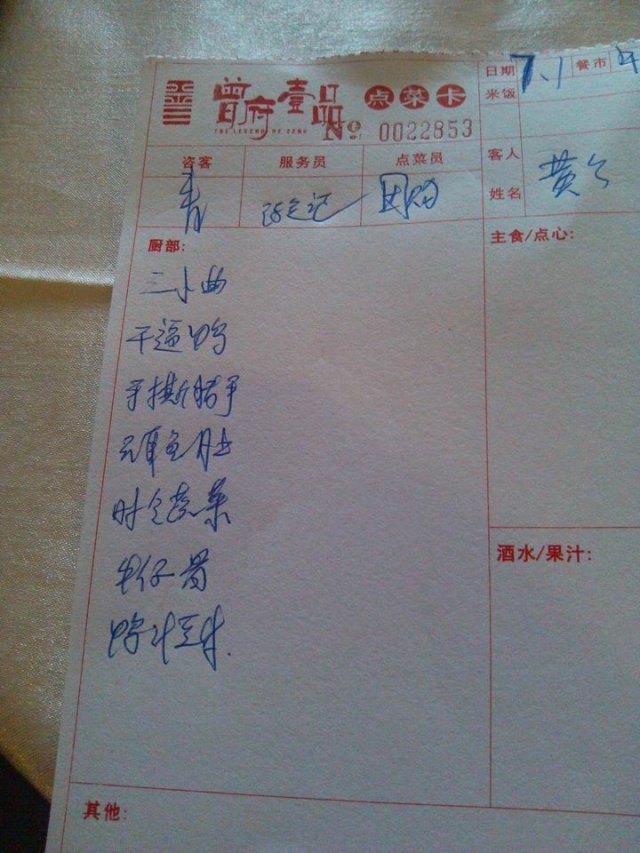 曾府壹品 点菜卡
THE LEGEND OF ZENG
No 0022853
日期 7.1 餐市 午
米饭
咨客 服务员 点菜员
青 团购
客人姓名 黄
厨部:
主食/点心:
三小曲
干逼鸭
手撕腊
鱼肚
时令蔬菜
牛仔骨
鸭汁
酒水/果汁:
其他: